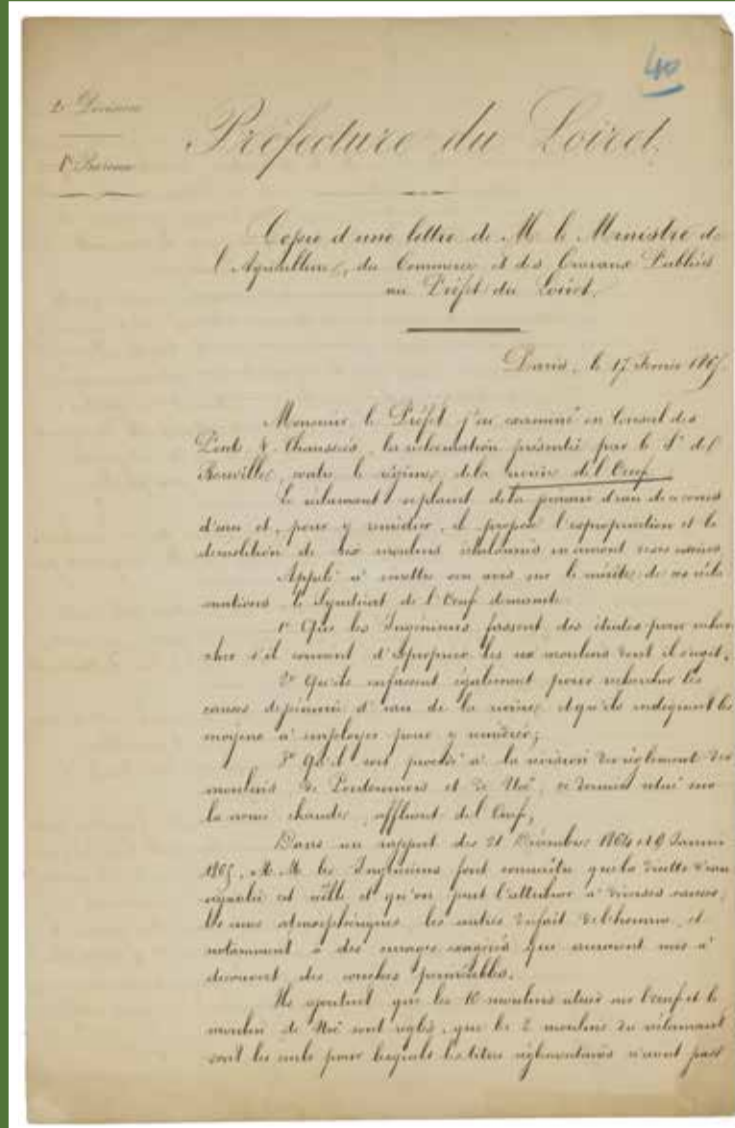 40
2e Division
1er Bureau
Préfecture du Loiret.
Copie d'une lettre de M. le Ministre de
l'Agriculture, du Commerce et des Travaux Publics
au Préfet du Loiret.
Paris, le 17 Février 1865.
Monsieur le Préfet j'ai examiné en Conseil des
Ponts & Chaussées, la réclamation présentée par le Sr de
Bouville, contre le régime de la rivière de l'Oeuf.
Le réclamant se plaint de la pénurie d'eau de ce cours
d'eau et, pour y remédier, il propose l'expropriation et la
démolition de six moulins établis en amont
Appelé à émettre son avis sur le mérite de ces récla-
mations, le Syndicat de l'Oeuf demande:
1° Que les Ingénieurs fassent des études pour recher-
cher s'il convient d'exproprier les six moulins dont il s'agit;
2° Qu'ils en fassent également pour rechercher les
causes de pénurie d'eau de la rivière, et qu'ils indiquent les
moyens à employer pour y remédier;
3° Qu'il soit procédé à la révision du règlement des
moulins de et de Noé, ce dernier situé sur
la affluent de l'Oeuf;
Dans un rapport des 21 Décembre 1864 et 9 Janvier
1865, M.M. les Ingénieurs font connaître que la disette d'eau
signalée est réelle et qu'on peut l'attribuer à diverses causes,
les unes atmosphériques, les autres du fait de l'homme, et
notamment à des curages exagérés qui auraient mis à
découvert des couches perméables.
Ils ajoutent que les 10 moulins situés sur l'oeuf et le
moulin de Noé sont réglés, que les 2 moulins du réclamant
sont les seuls pour lesquels les titres réglementaires n'aient pas